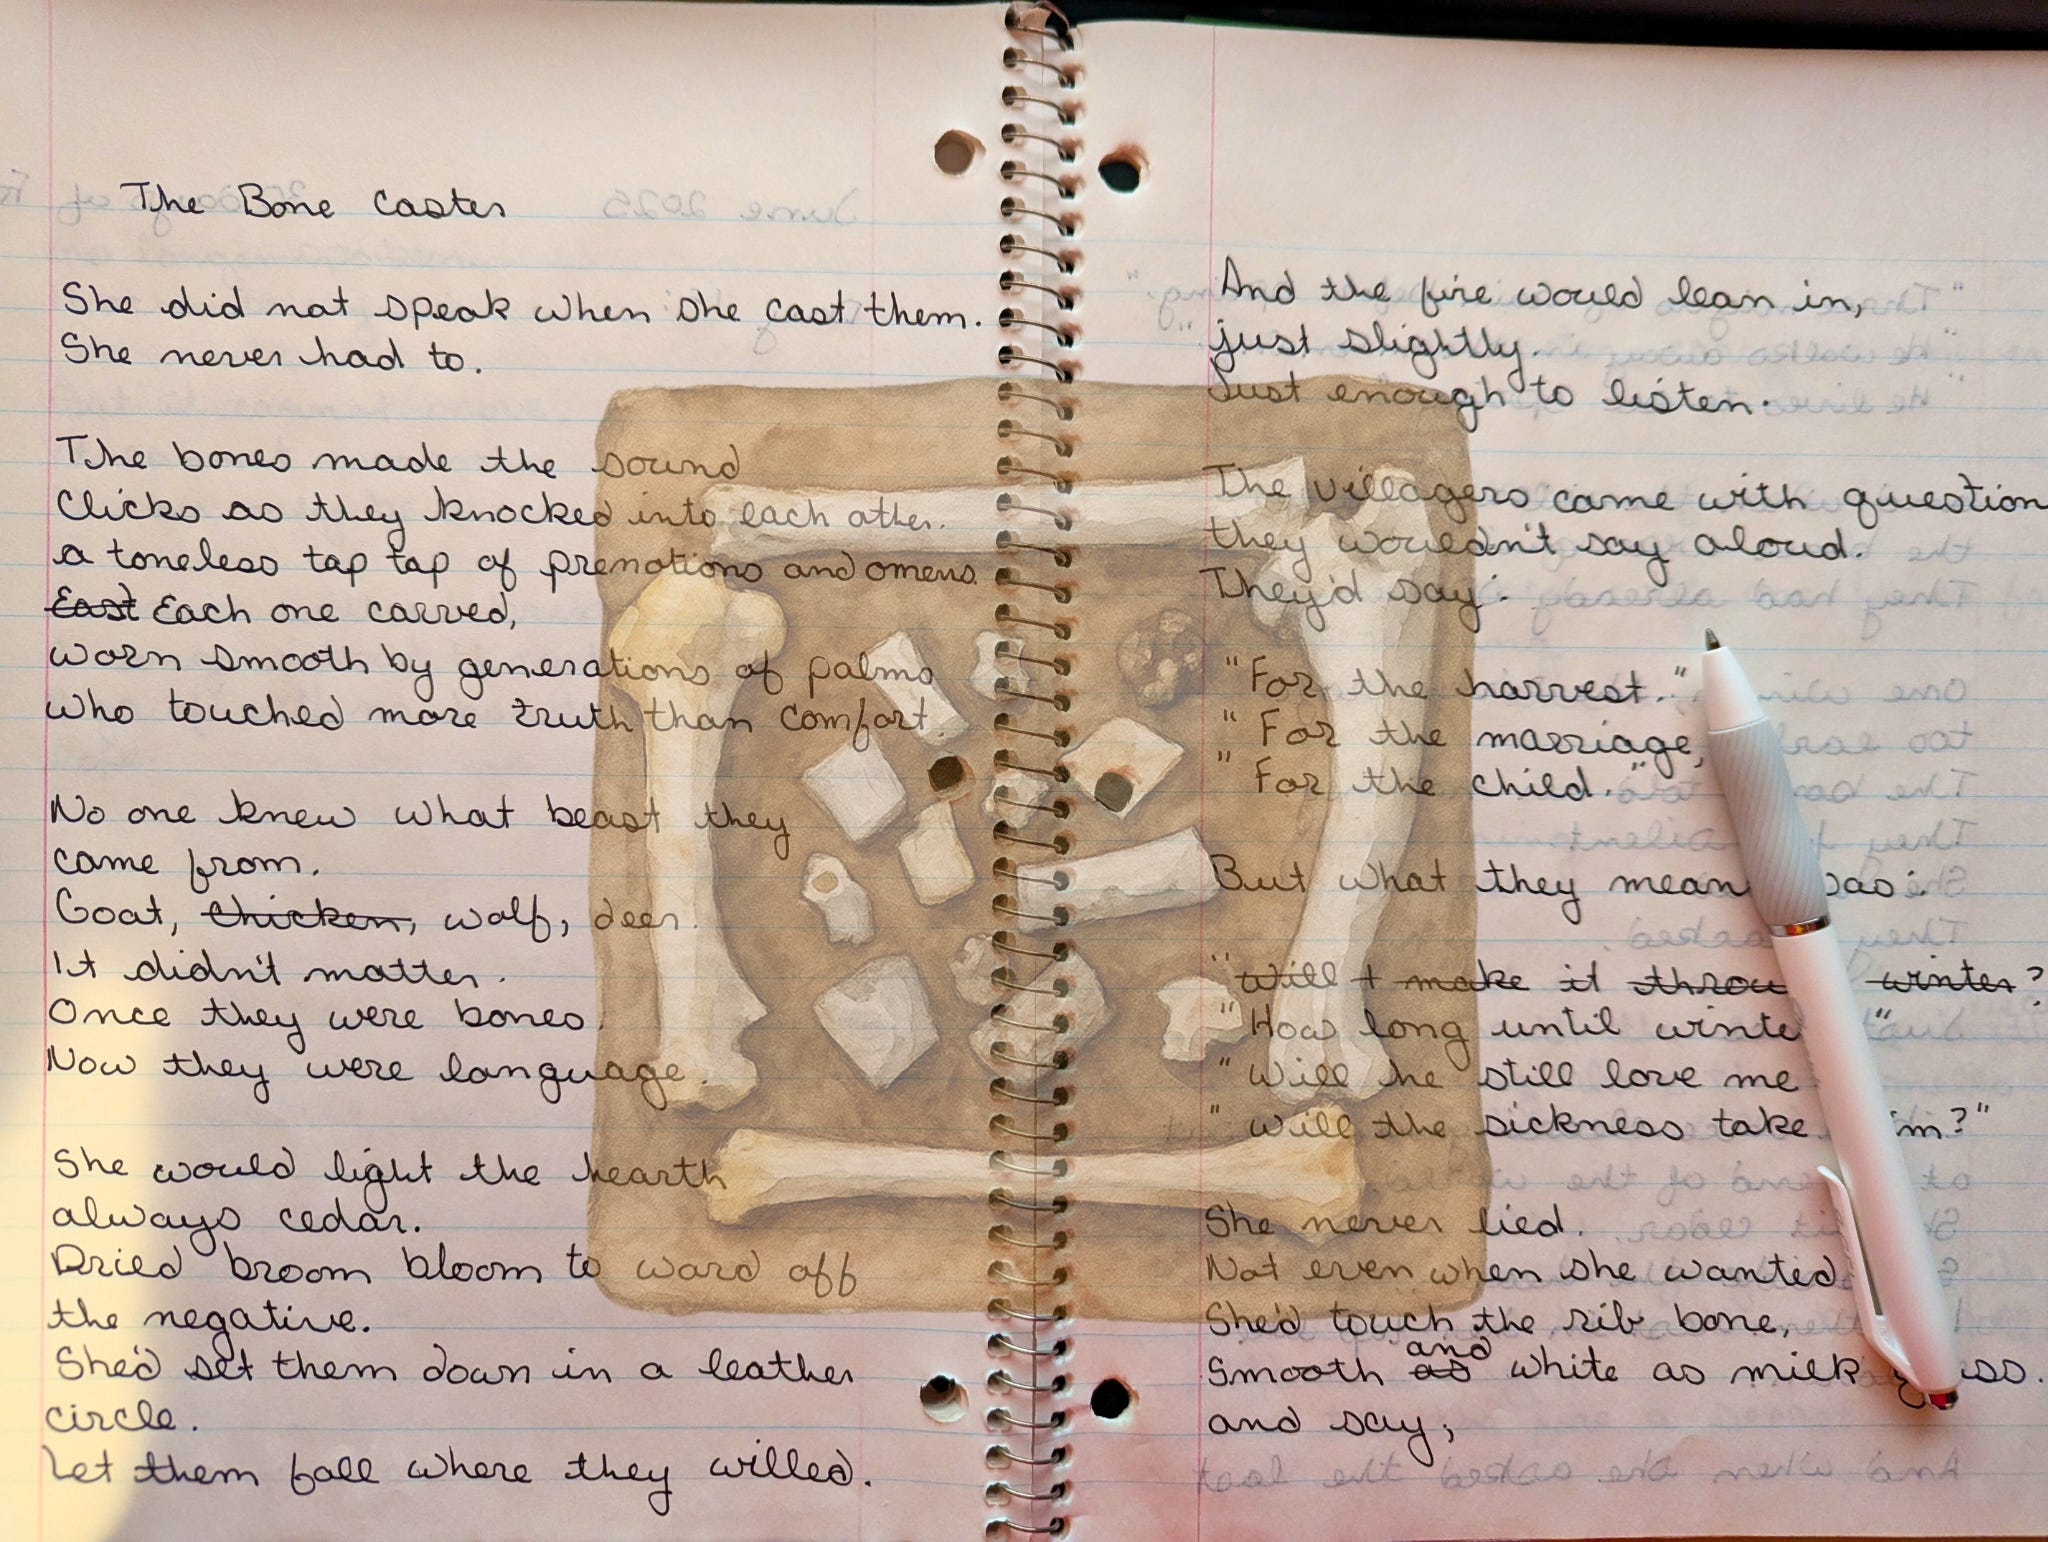 The Bone Caster
June 2025
She did not speak when she cast them.
She never had to.
The bones made the sound
Clicks as they knocked into each other.
a toneless tap tap of premotions and omens.
East Each one carved,
worn smooth by generations of palms
who touched more truth than comfort.
No one knew what beast they
came from.
Goat, chicken, wolf, deer.
It didn't matter.
Once they were bones.
Now they were language.
She would light the hearth
always cedar.
Dried broom bloom to ward off
the negative.
She'd set them down in a leather
circle.
Let them fall where they willed.
And the fire would lean in,
just slightly.
Just enough to listen.
The villagers came with question
they wouldn't say aloud.
They'd say:
"For the harvest."
"For the marriage,
"For the child."
But what they mean was:
"Will I make it throu winter?
"How long until winte "
"Will he still love me
"Will the sickness take im?"
She never lied.
Not even when she wanted
She'd touch the rib bone,
and
Smooth as white as milk g ss.
and say;